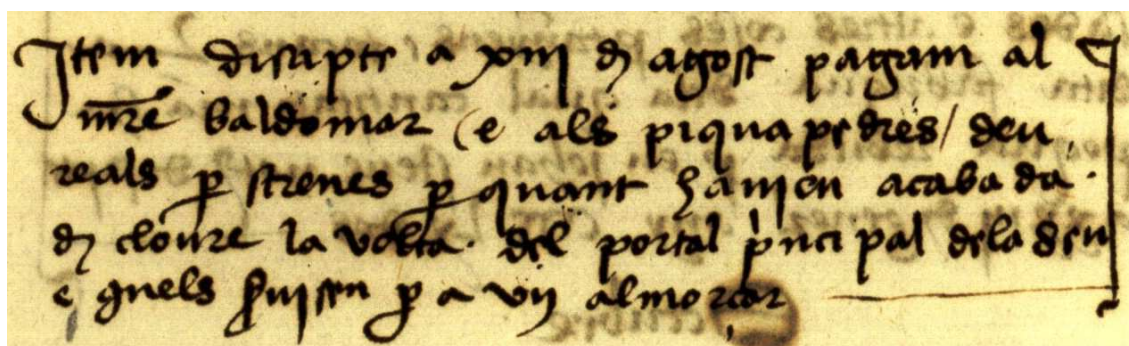 Item disapte a xiii de agost pagam al
mre baldomar (e als piquapedres / deu
reals per strenes per quant havien acabada
de cloure la volta del portal principal de la Seu
e quels servisen per a un almorçar